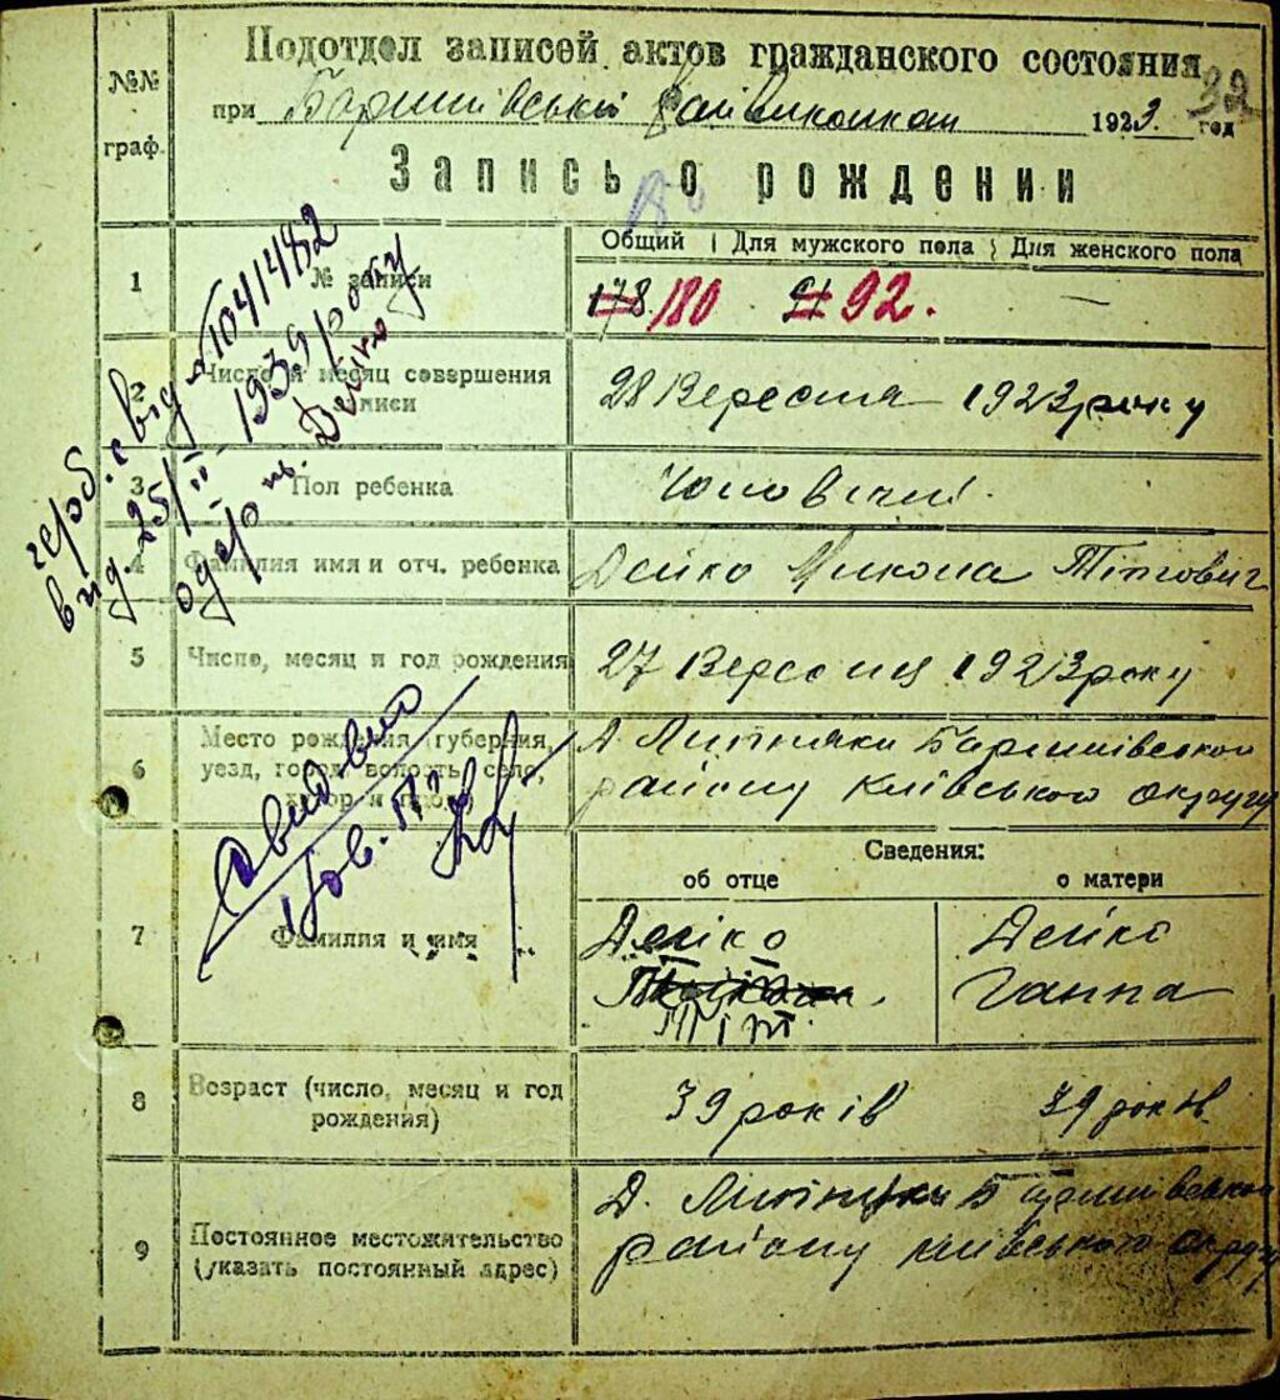 32
Подотдел записей актов гражданского состояния
№№ граф.
при Баришівськім Райвиконкомі 1923. год
Запись о рождении
Общий Для мужского пола Для женского пола
1 № записи 178 180 91 92. —
2 Число и месяц совершения записи 28 Вересня 1923 року
3 Пол ребенка Чоловічий.
4 Фамилия имя и отч. ребенка Дейко Микола Тітович
5 Число, месяц и год рождения 27 Вересня 1923 року
6 Место рождения (губерния, Д. Липняки Баришівського
уезд, город, волость, село, району Київського округу
Сведения:
об отце о матери
7 Фамилия и имя Дейко Дейко
Тіт. Ганна
8 Возраст (число, месяц и год рождения) 39 років 39 років
9 Постоянное местожительство Д. Липняки Баришівського
(указать постоянный адрес) району Київського округу
герб. с від
1041482
вид. 25/
1939 року
одер. Дейко